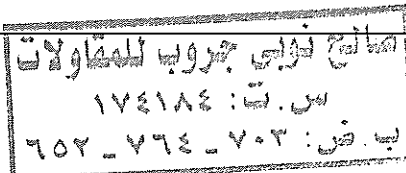 صالح نوبي جروب للمقاولات
س.ت: ١٧٤١٨٤
ب.ض: ٧٠٣ - ٧٦٤ - ٦٥٢